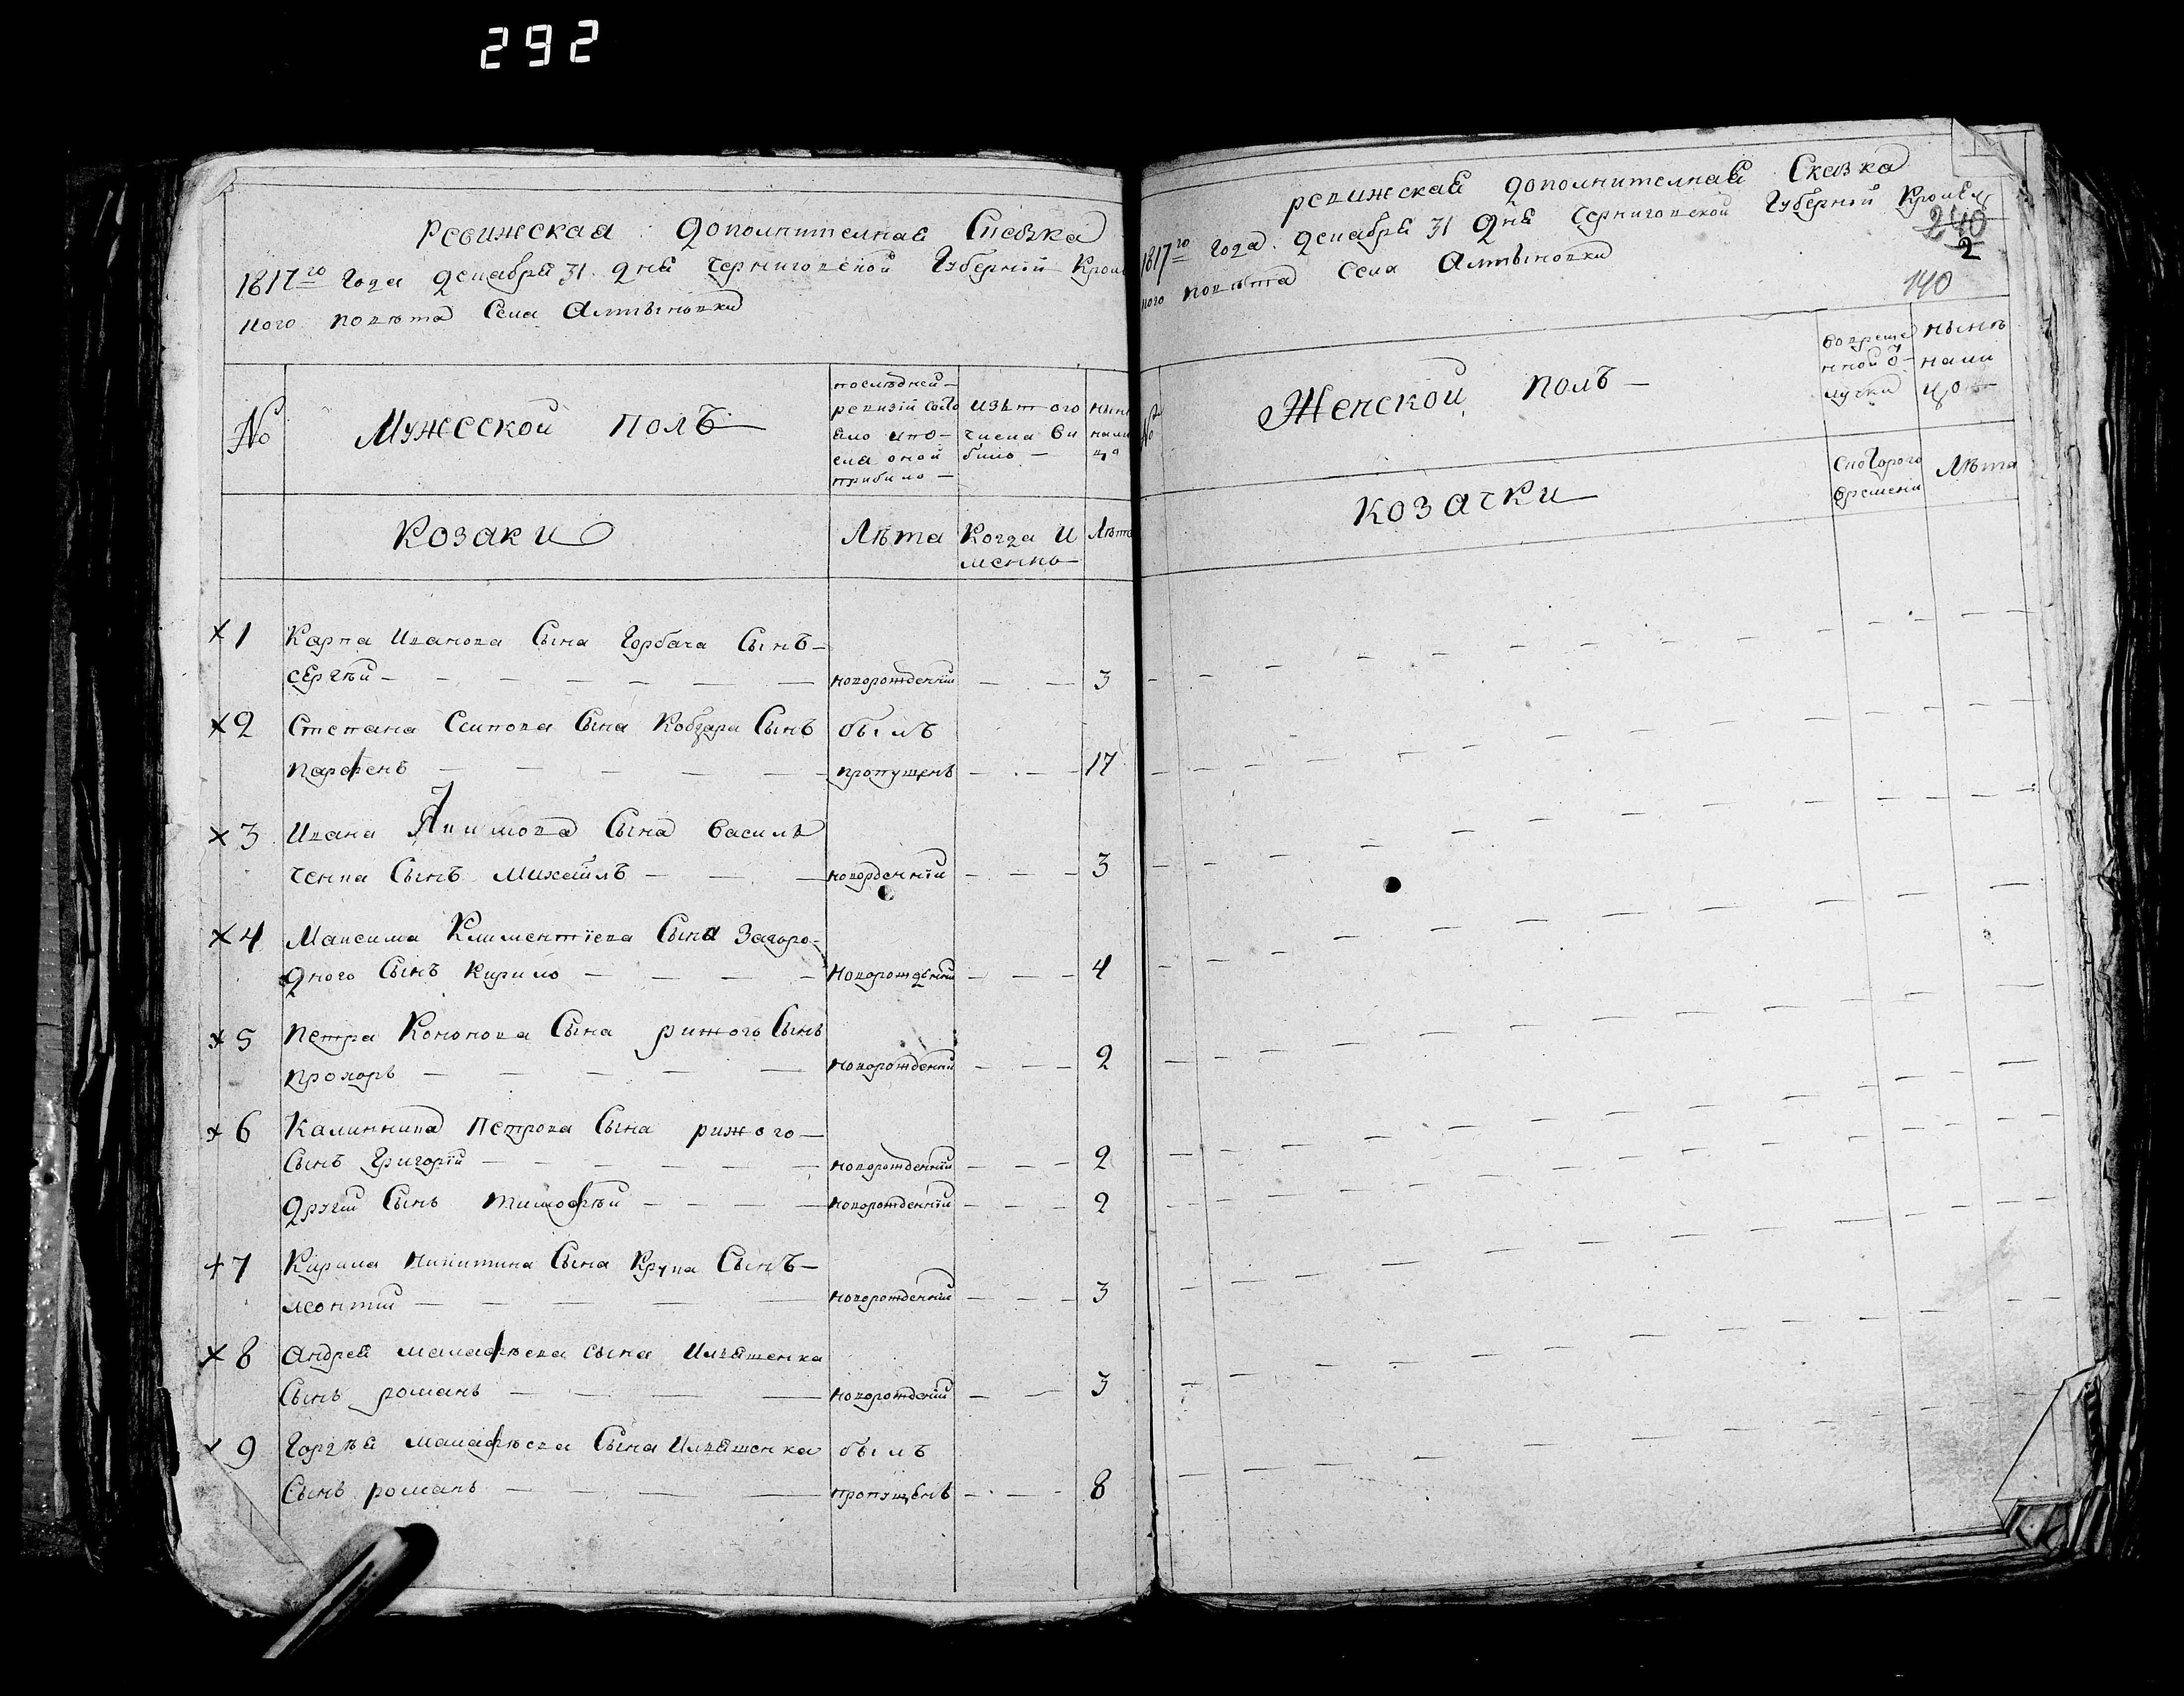 292
Ревижская дополнителная Сказка
1817го Года декабря 31 дня Черниговской Губернїи Кроле
ного повѣта Села Алтыновки
No
Мужеской полъ
последней
ревизїи состо
яло и по
сла оной
прибило
Изъ того
числа ви
било
нын
нали
цо
Козаки
Лѣта
Когда И
менно
Лѣта
×1 Карпа Иванова Сына Горбача Сынъ
Сергѣй новорожденнїй 3
×2 Степана Есипова Сына Кобзара Сынъ былъ
Парфенъ пропущенъ 17
×3 Ивана Якимова Сына Василь
ченка Сынъ Михайлъ новорденнїи 3
×4 Максима Климентїева Сына Загоро-
дного Сынъ Кирило Новорожденнїй 4
×5 Петра Кононова Сына рижого Сынъ
прохоръ Новорожденнїй 2
×6 Калинника Петрова Сына рижого
Сынъ Григорїй новорожденнїй 2
Другїй Сынъ Тимофѣй новорожденнїй 2
×7 Кирила Никитина Сына Крука Сынъ
леонтїй новорожденнїй 3
×8 Андрея малафѣева сына Ильяшенка
Сынъ романъ новорожденїй 3
×9 Горгѣя малафѣева Сына Ильяшенка былъ
Сынъ романъ пропущенъ 8
ревижская дополнителная Сказка
1817го Года декабря 31 дня Черниговской Губернїй Кролев
ного повѣта Села Алтыновки
240
2
140
No
Женской полъ
во време
нной о
лучки
нынѣ
нали
цо
козачки
С которого
времени
Лѣта